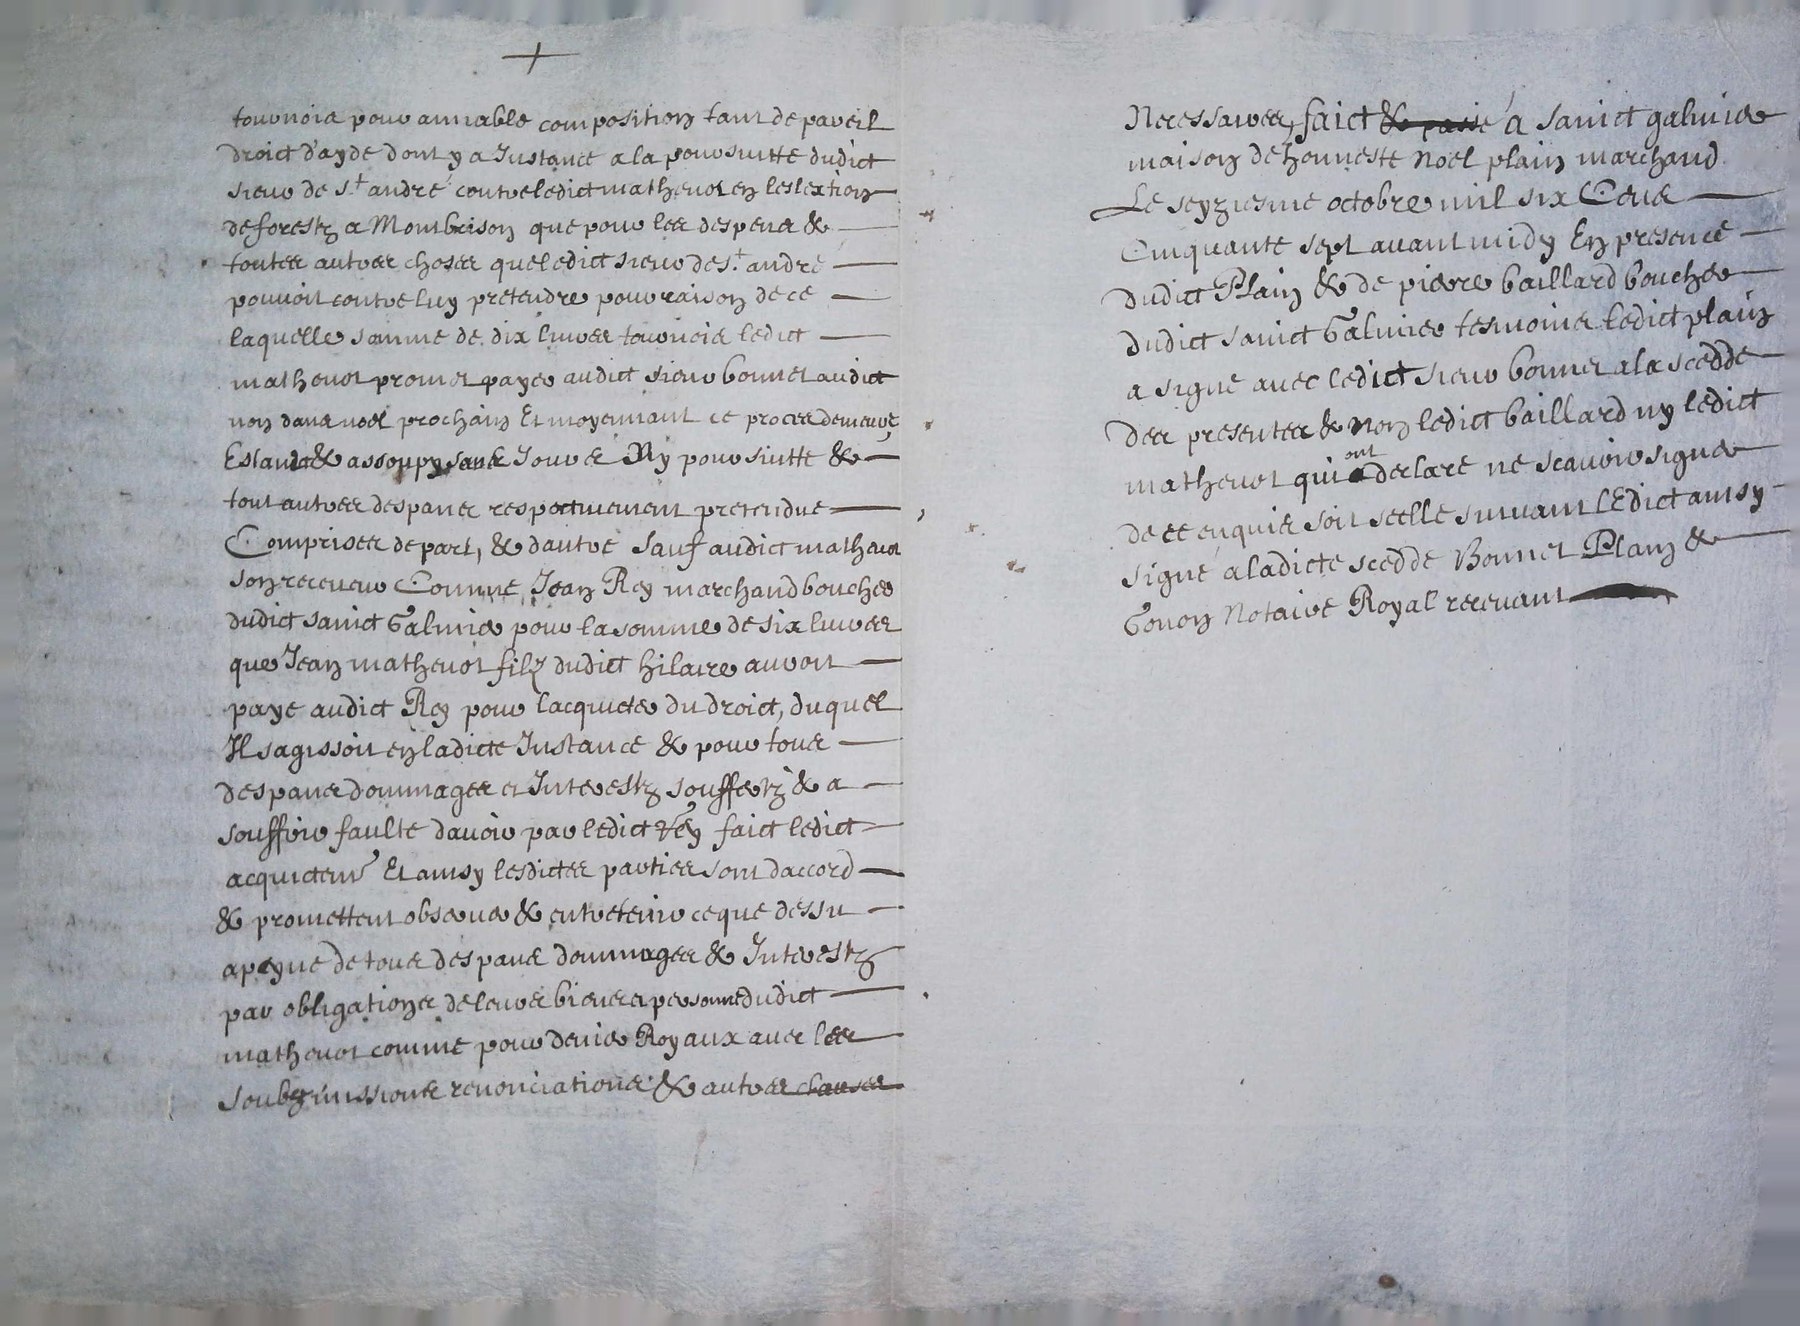 tournois pour amiable composition tant de pareil
droict d'ayde dont y a Instance a la poursuitte dudict
sieur de st andré contre ledict mathevot en leslextion
de forestz a Montbrison que pour les despens &
toutes autres choses que ledict sieur de st andré
pouvoit contre luy pretendre pour raison de ce
laquelle somme de dix livres tournois ledict
mathevot promet payer audict sieur bonnet audict
nom dans noel prochain Et moyennant ce proces demeure
Estaint & assouppy sans Jours Ny poursuitte &
tout autres despans respectivement pretendus
Comprises de part, & dautre Sauf audict mathevot
son recouvr Comme Jean Rey marchand boucher
dudict sainct Galmier pour la somme de six livres
que Jean mathevot filz dudict hilaire auroit
paye audict Rey pour lacquicter du droict, duquel
Il sagissoit en ladicte Instance & pour tous
despans dommages et Interestz soufferts & a
souffrir faulte davoir par ledict rey faict ledict
acquictemt Et ainsy lesdictes parties sont daccord
& promettent observer & entretenir ce que dessu
a peyne de tous despans dommages & Interestz
par obligations de leurs biens et personne dudict
mathevot comme pour denier Royaux avec les
soubzmissions renonciations & autres clauses
Necessaires, faict & passé a sainct galmier
maison de honneste Noel plain marchand
Le seyziesme octobre mil six Cens
Cinquante sept avant midy En presence
dudict Plain & de pierre baillard boucher
dudict sainct Galmier tesmoins ledict plain
a signé avec ledict sieur bonnet a la scedde
des presentes & Non ledict baillard ny ledict
mathevot qui ont declaré ne scavoir signer
de ce enquis soit scelle suivant lEdict ainsy
signé a ladicte scedde Bonnet Plain &
Gonon Notaire Royal recevant